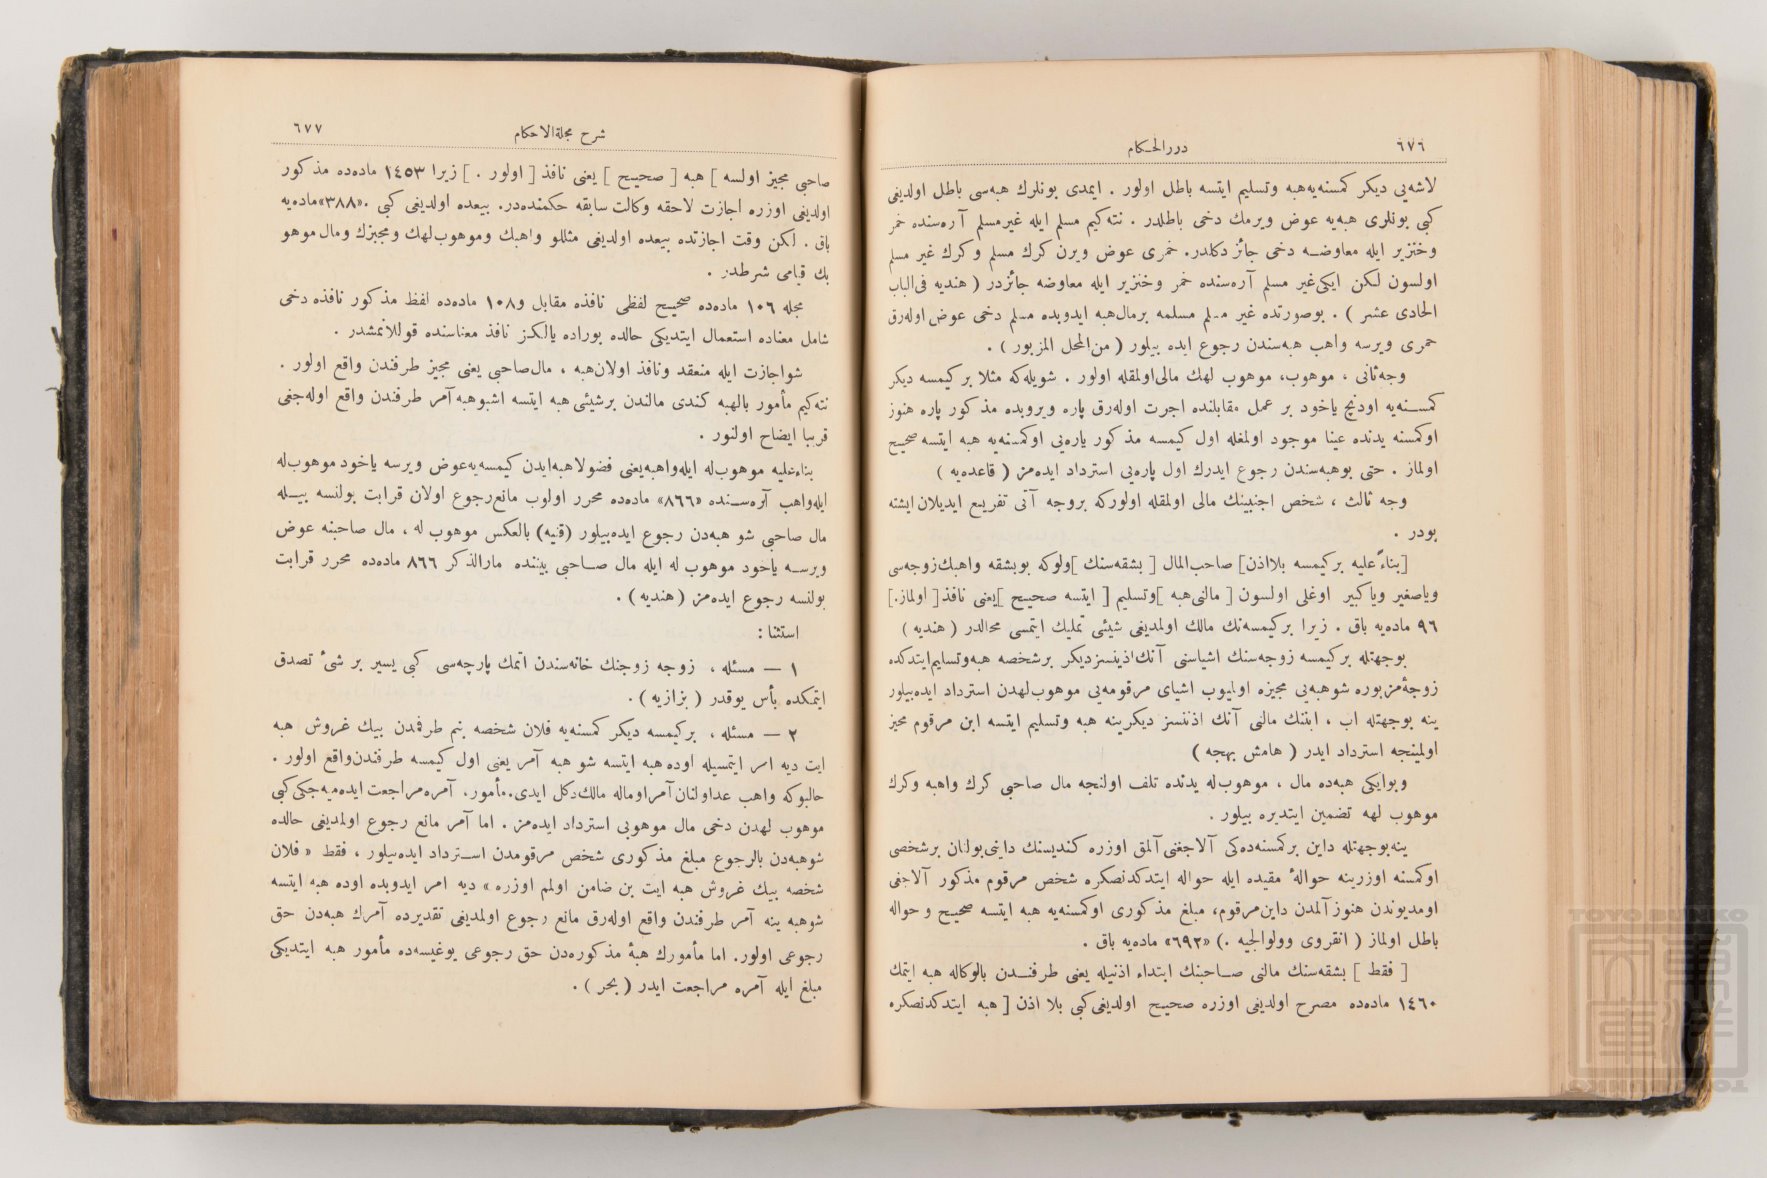 ٦٧٦
دررالحكام
لاشه‌يی ديكر كمسنه‌يه هبه وتسليم ايتسه باطل اولور . ايمدی بونلرك هبه‌سی باطل اولديغی
كبی بونلری هبه‌يه عوض ويرمك دخی باطلدر . نته‌كيم مسلم ايله غيرمسلم آره‌سنده خمر
وخنزير ايله معاوضه دخی جائز دكلدر. خمری عوض ويرن كرك مسلم وكرك غير مسلم
اولسون لكن ايكی غير مسلم آره‌سنده خمر وخنزير ايله معاوضه جائزدر ( هنديه فی‌الباب
الحادی عشر ) . بوصورتده غير مسلم مسلمه برمال هبه ايدوبده مسلم دخی عوض اوله‌رق
خمری ويرسه واهب هبه‌سندن رجوع ايده بيلور ( من‌المحل المزبور ) .
وجه ثانی ، موهوب، موهوب لهك مالی اولمقله اولور . شويله‌كه مثلا بركيمسه ديكر
كمسنه‌يه اودنج ياخود بر عمل مقابلنده اجرت اوله‌رق پاره ويروبده مذكور پاره هنوز
اوكمسنه يدنده عينا موجود اولمغله اول كيمسه مذكور پاره‌يی اوكمسنه‌يه هبه ايتسه صحيح
اولماز . حتی بوهبه‌سندن رجوع ايدرك اول پاره‌يی استرداد ايده‌مز ( قاعديه )
وجه ثالث ، شخص اجنبينك مالی اولمقله اولوركه بروجه آتی تفريع ايديلان ايشته
بودر .
[بناءً عليه بركيمسه بلااذن] صاحب‌المال [ بشقه‌سنك ]ولوكه بوبشقه واهبك زوجه‌سی
وياصغير وياكبير اوغلی اولسون [ مالنی هبه ]وتسليم [ ايتسه صحيح ]يعنی نافذ[ اولماز.]
٩٦ ماده‌يه باق . زيرا بركيمسه‌نك مالك اولمديغی شيئی تمليك ايتمسی محالدر ( هنديه )
بوجهتله بركيمسه زوجه‌سنك اشياسنی آنك اذينسز ديكر برشخصه هبه وتسليم ايتدكده
زوجهٔ مزبوره شوهبه‌يی مجيزه اولميوب اشيای مرقومه‌يی موهوب لهدن استرداد ايده‌بيلور
ينه بوجهتله اب ، ابننك مالنی آنك اذننسز ديكرينه هبه وتسليم ايتسه ابن مرقوم مجيز
اولمينجه استرداد ايدر ( هامش بهجه )
وبوايكی هبه‌ده مال ، موهوب‌له يدنده تلف اولنجه مال صاحبی كرك واهبه وكرك
موهوب لهه تضمين ايتديره بيلور .
ينه بوجهتله داين بركمسنه‌ده‌كی آلاجغنی آلمق اوزره كنديسنك داينی بولنان برشخصی
اوكمسنه اوزرينه حوالهٔ مقيده ايله حواله ايتدكدنصكره شخص مرقوم مذكور آلاجغی
اومديوندن هنوز آلمدن داين مرقوم، مبلغ مذكوری اوكمسنه‌يه هبه ايتسه صحيح وحواله
باطل اولماز ( انقروی وولوالجيه .) «٦٩٢» ماده‌يه باق .
[ فقط ] بشقه‌سنك مالنی صاحبنك ابتداء اذنيله يعنی طرفندن بالوكاله هبه ايتمك
١٤٦٠ ماده‌ده مصرح اولديغی اوزره صحيح اولديغی كبی بلا اذن [ هبه ايتدكدنصكره
شرح مجلةالاحكام
٦٧٧
صاحبی مجيز اولسه ] هبه [ صحيح ] يعنی نافذ [ اولور . ] زيرا ١٤٥٣ ماده‌ده مذكور
اولديغی اوزره اجازت لاحقه وكالت سابقه حكمنده‌در. بيعده اولديغی كبی .«٣٨٨»ماده‌يه
باق . لكن وقت اجازتده بيعده اولديغی مثللو واهبك وموهوب‌لهك ومجيزك ومال موهو
بك قيامی شرطدر .
مجله ١٠٦ ماده‌ده صحيح لفظی نافذه مقابل و١٠٨ ماده‌ده لفظ مذكور نافذه دخی
شامل معناده استعمال ايتديكی حالده بوراده يالكز نافذ معناسنده قوللانمشدر .
شواجازت ايله منعقد ونافذ اولان هبه ، مال صاحبی يعنی مجيز طرفندن واقع اولور .
نته‌كيم مأمور بالهبه كندی مالندن برشيئی هبه ايتسه اشبوهبه آمر طرفندن واقع اوله‌جغی
قريبا ايضاح اولنور .
بناءعليه موهوب‌له ايله واهبه يعنی فضولا هبه ايدن كيمسه‌يه عوض ويرسه ياخود موهوب‌له
ايله واهب آره‌سنده «٨٦٦» ماده‌ده محرر اولوب مانع رجوع اولان قرابت بولنسه بيله
مال صاحبی شو هبه‌دن رجوع ايده‌بيلور (قنيه) بالعكس موهوب له ، مال صاحبنه عوض
ويرسه ياخود موهوب له ايله مال صاحبی بيننده مارالذكر ٨٦٦ ماده‌ده محرر قرابت
بولنسه رجوع ايده‌مز ( هنديه ) .
استثنا :
١ — مسئله ، زوجه زوجنك خانه‌سندن اتمك پارچه‌سی كبی يسير بر شیٔ تصدق
ايتمكده بأس يوقدر ( بزازيه ) .
٢ — مسئله ، بركيمسه ديكر كمسنه‌يه فلان شخصه بنم طرفمدن بيك غروش هبه
ايت ديه امر ايتمسيله اوده هبه ايتسه شو هبه آمر يعنی اول كيمسه طرفندن واقع اولور .
حالبوكه واهب عداولنان آمر اوماله مالك دكل ايدی. مأمور، آمره مراجعت ايده‌ميه‌جكی كبی
موهوب لهدن دخی مال موهوبی استرداد ايده‌مز . اما آمر مانع رجوع اولمديغی حالده
شوهبه‌دن بالرجوع مبلغ مذكوری شخص مرقومدن استرداد ايده‌بيلور ، فقط « فلان
شخصه بيك غروش هبه ايت بن ضامن اولم اوزره » ديه امر ايدوبده اوده هبه ايتسه
شوهبه ينه آمر طرفندن واقع اوله‌رق مانع رجوع اولمديغی تقديرده آمرك هبه‌دن حق
رجوعی اولور. اما مأمورك هبهٔ مذكوره‌دن حق رجوعی يوغيسه‌ده مأمور هبه ايتديكی
مبلغ ايله آمره مراجعت ايدر ( بحر ) .
TOYO BUNKO